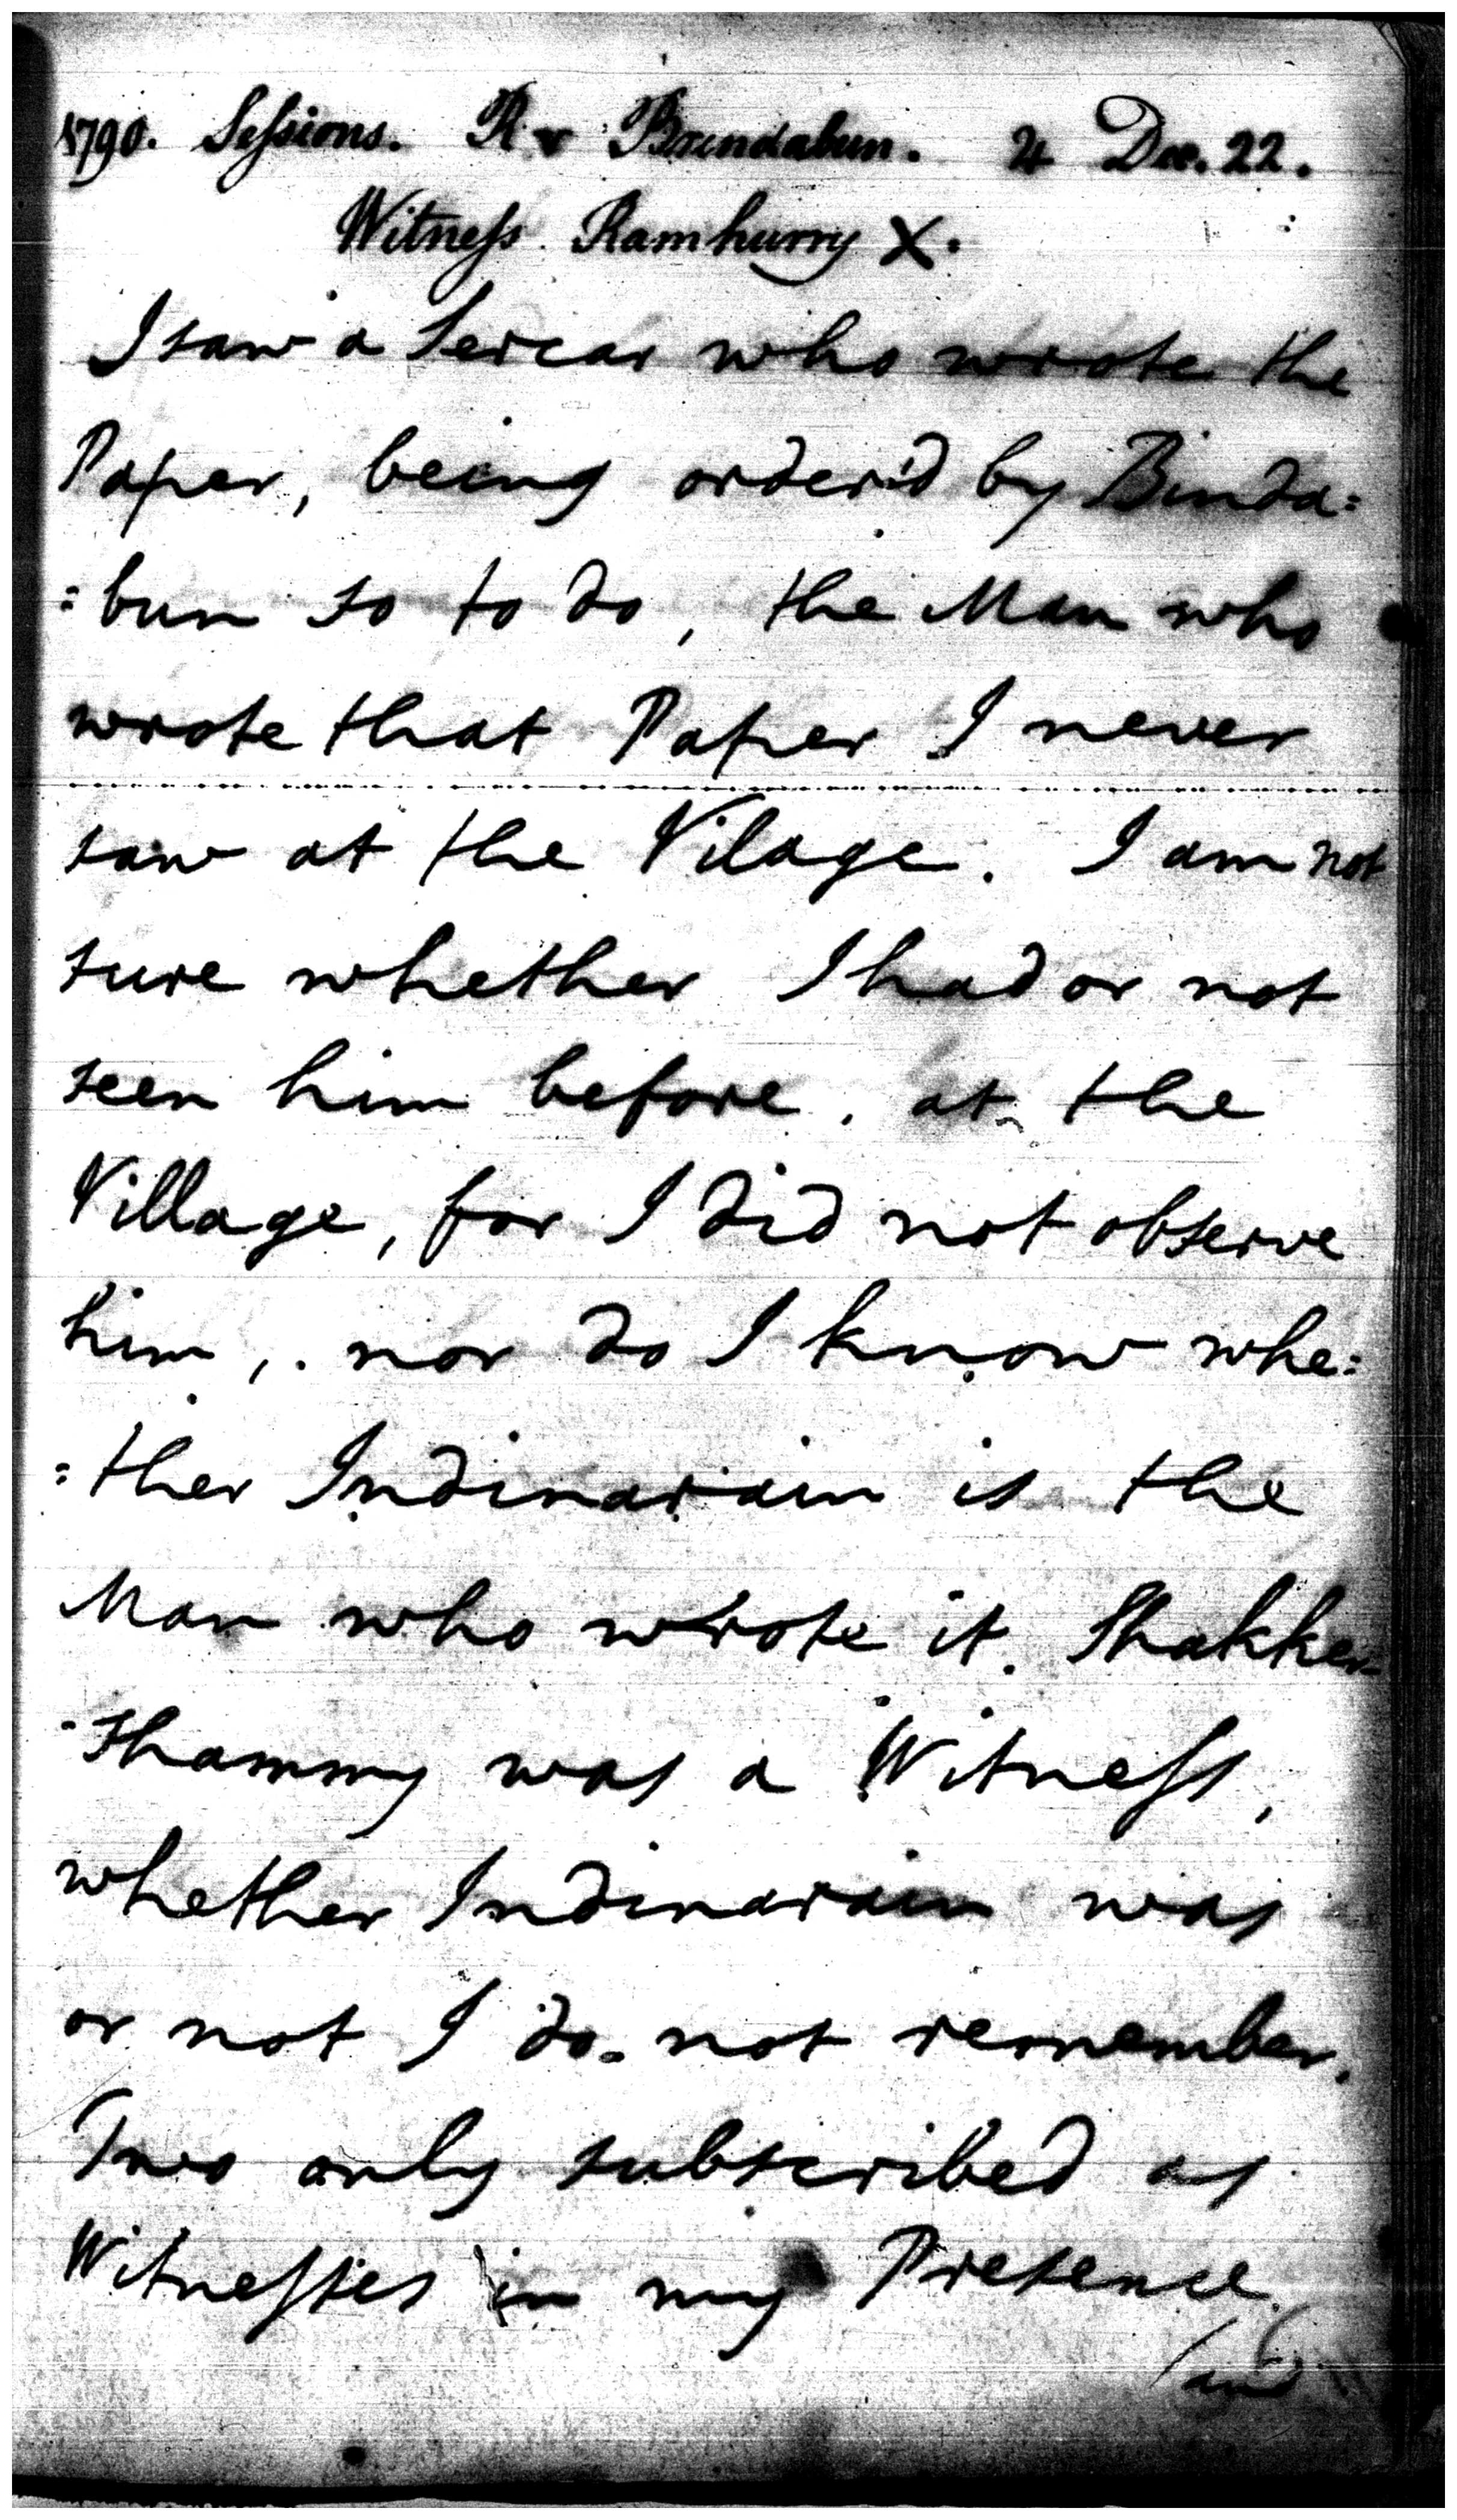 1790. Sessions. R v Brindabun. 4 Dec. 22.
Witness Ramhurry X.
I saw a Sercar who wrote the
Paper, being order'd by Binda=
=bun so to do, the Man who
wrote that Paper I never
saw at the Vilage. I am not
sure whether I had or not
seen him before. at the
Village, for I did not observe
him, nor do I know whe=
=ther Indinarain is the
Man who wrote it. Shakker
-shammy was a Witness,
whether Indinarain was
or not I do not remember.
Two only subscribed as
Witnesses in my Presence.
(and